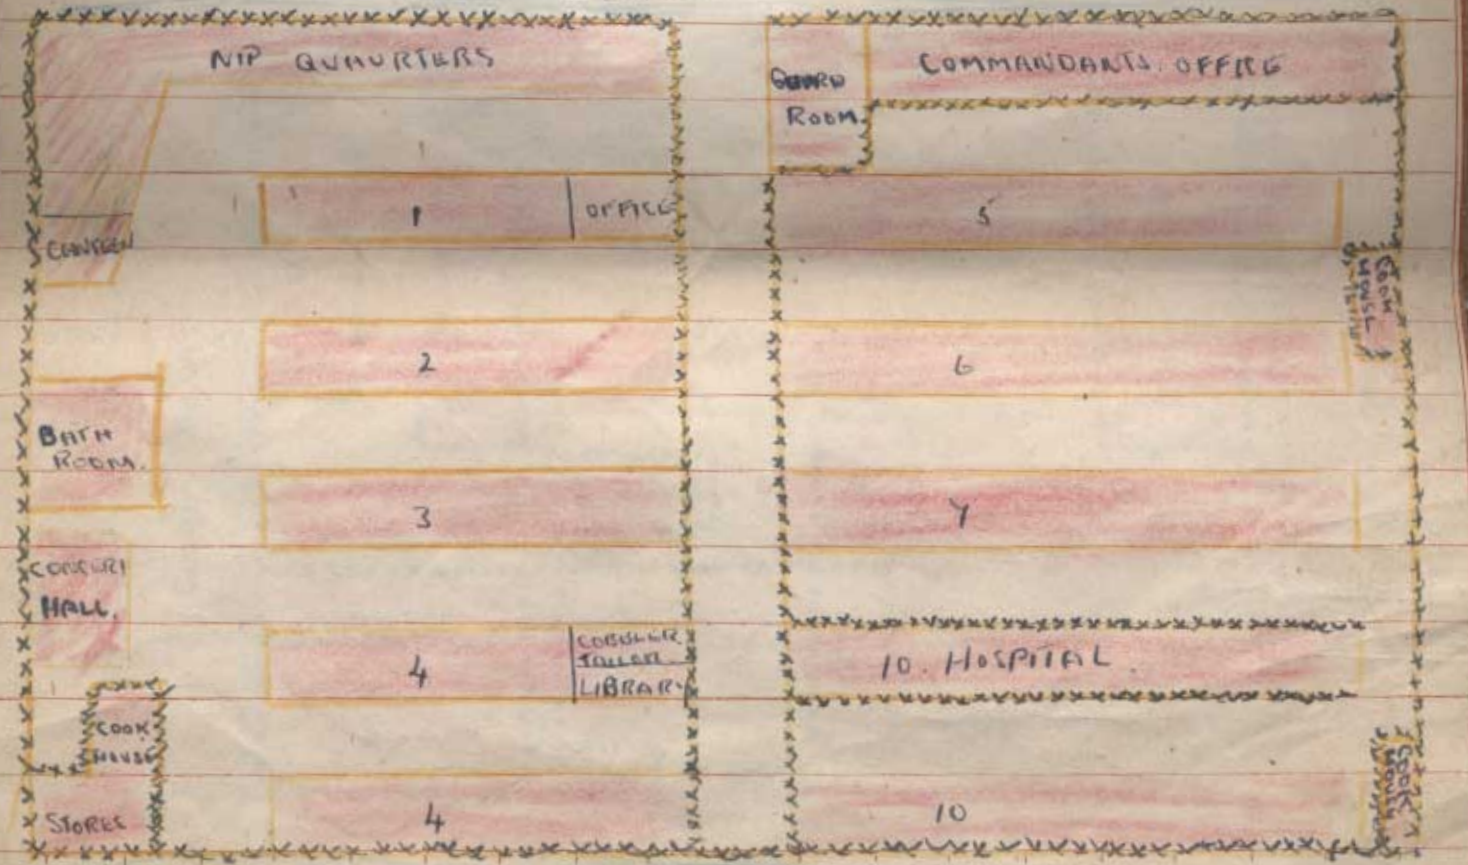 NIP QUAURTERS
COMMANDANTS. OFFICE
GUARD
ROOM.
1
OFFICE
5
CANTEEN
COOK
HOUSE
2
6
BATH
ROOM.
3
7
CONCERT
HALL.
4
COBBLER
TAILOR
LIBRARY
10. HOSPITAL.
COOK
HOUSE
STORES
4
10
COOK
HOUSE